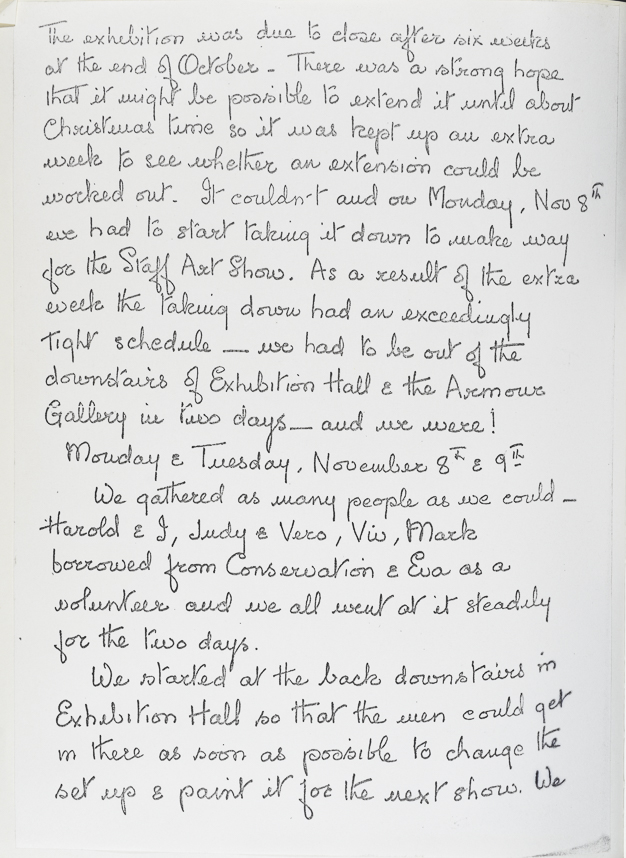 The exhibition was due to close after six weeks
at the end of October - There was a strong hope
that it might be possible to extend it until about
Christmas time so it was kept up an extra
week to see whether an extension could be
worked out. It couldn't and on Monday, Nov 8th
we had to start taking it down to make way
for the Staff Art Show. As a result of the extra
week the taking down had an exceedingly
tight schedule — we had to be out of the
downstairs of Exhibition Hall & the Armour
Gallery in two days — and we were!
Monday & Tuesday, November 8th & 9th
We gathered as many people as we could -
Harold & I, Judy & Vero, Viv, Mark
borrowed from Conservation & Eva as a
volunteer and we all went at it steadily
for the two days.
We started at the back downstairs in
Exhibition Hall so that the men could get
in there as soon as possible to change the
set up & paint it for the next show. We